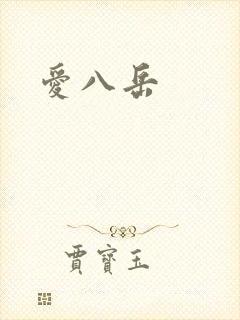 愛八岳
賈寶玉